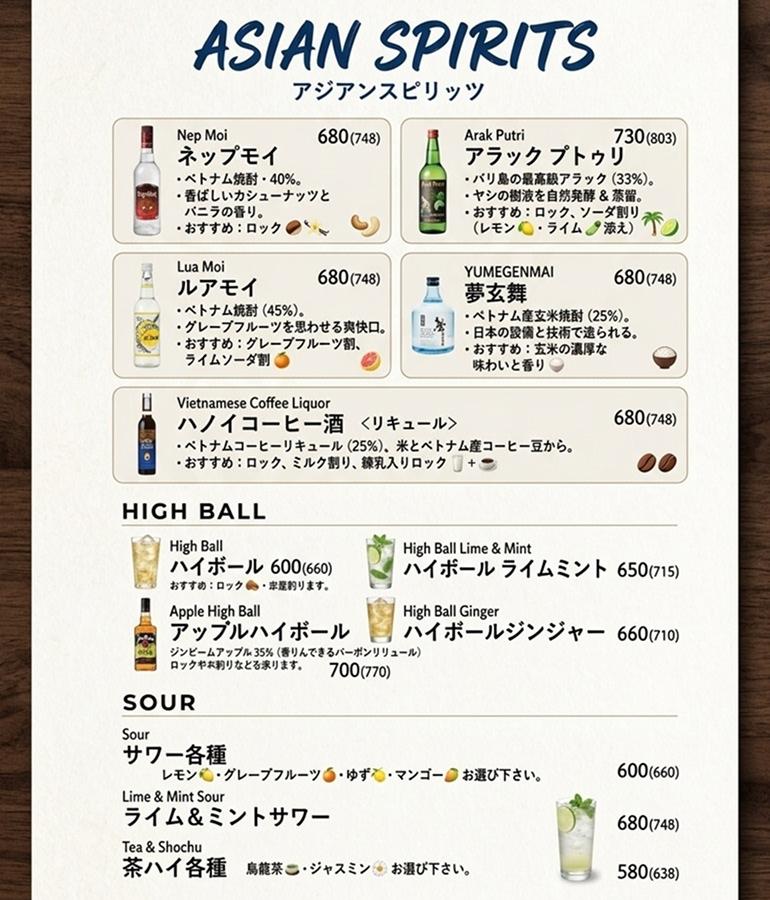 ASIAN SPIRITS
アジアンスピリッツ
Nep Moi 680(748)
ネップモイ
・ベトナム焼酎・40%。
・香ばしいカシューナッツと
バニラの香り。
・おすすめ：ロック
Arak Putri 730(803)
アラック プトゥリ
・バリ島の最高級アラック（33%）。
・ヤシの樹液を自然発酵 & 蒸留。
・おすすめ：ロック、ソーダ割り
（レモン・ライム添え）
Lua Moi 680(748)
ルアモイ
・ベトナム焼酎（45%）。
・グレープフルーツを思わせる爽快口。
・おすすめ：グレープフルーツ割、
ライムソーダ割
YUMEGENMAI 680(748)
夢玄舞
・ベトナム産玄米焼酎（25%）。
・日本の設備と技術で造られる。
・おすすめ：玄米の濃厚な
味わいと香り
Vietnamese Coffee Liquor
ハノイコーヒー酒 〈リキュール〉 680(748)
・ベトナムコーヒーリキュール（25%）、米とベトナム産コーヒー豆から。
・おすすめ：ロック、ミルク割り、練乳入りロック +
HIGH BALL
High Ball
ハイボール 600(660)
おすすめ：ロック
High Ball Lime & Mint
ハイボール ライムミント 650(715)
Apple High Ball
アップルハイボール
ジンビームアップル 35%
700(770)
High Ball Ginger
ハイボールジンジャー 660(710)
SOUR
Sour
サワー各種
レモン・グレープフルーツ・ゆず・マンゴー お選び下さい。 600(660)
Lime & Mint Sour
ライム＆ミントサワー 680(748)
Tea & Shochu
茶ハイ各種 烏龍茶・ジャスミン お選び下さい。 580(638)